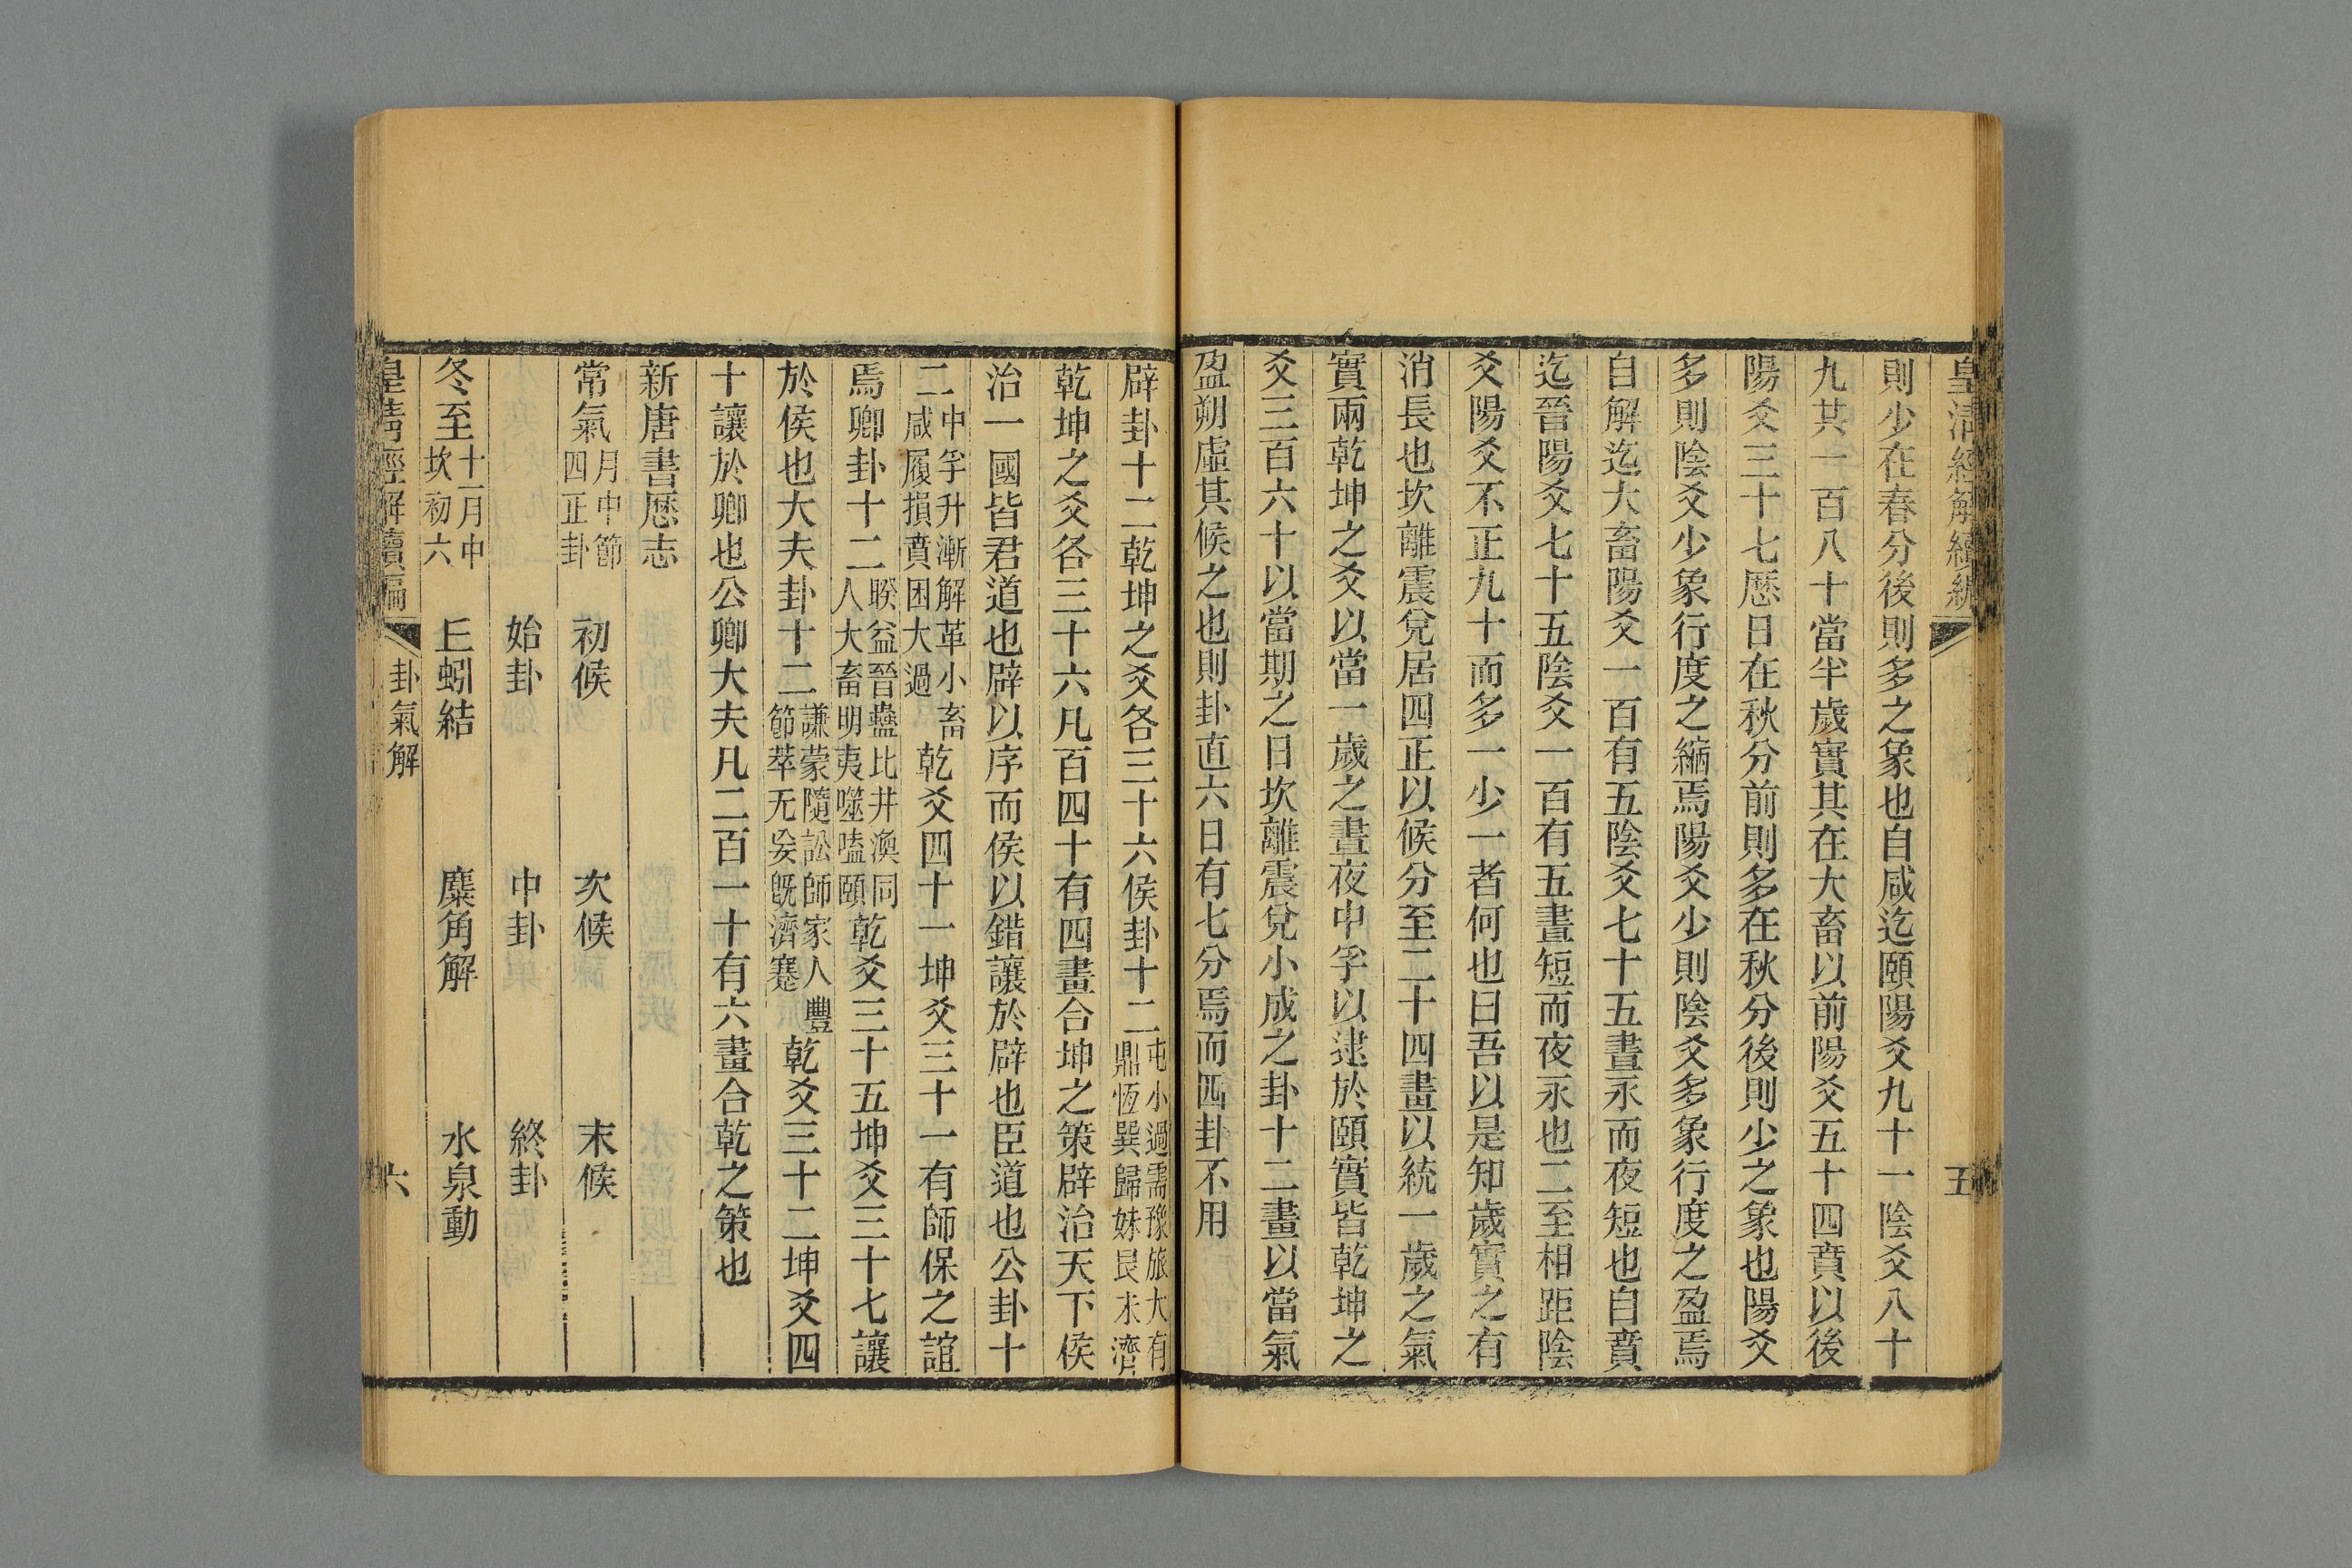 皇清經解續編
五
則少在春分後則多之象也自咸迄頤陽爻九十一陰爻八十
九其一百八十當半歲實其在大畜以前陽爻五十四賁以後
陽爻三十七歷日在秋分前則多在秋分後則少之象也陽爻
多則陰爻少象行度之縮焉陽爻少則陰爻多象行度之盈焉
自解迄大畜陽爻一百有五陰爻七十五晝永而夜短也自賁
迄晉陽爻七十五陰爻一百有五晝短而夜永也二至相距陰
爻陽爻不正九十而多一少一者何也曰吾以是知歲實之有
消長也坎離震兌居四正以候分至二十四畫以統一歲之氣
實兩乾坤之爻以當一歲之晝夜中孚以逮於頤實皆乾坤之
爻三百六十以當期之日坎離震兌小成之卦十二畫以當氣
盈朔虛其候之也則卦直六日有七分焉而四卦不用
辟卦十二乾坤之爻各三十六侯卦十二屯小過需豫旅大有鼎恆巽歸妹艮未濟
乾坤之爻各三十六凡百四十有四畫合坤之策辟治天下侯
治一國皆君道也辟以序而侯以錯讓於辟也臣道也公卦十
二中孚升漸解革小畜咸履損賁困大過乾爻四十一坤爻三十一有師保之誼
焉卿卦十二睽益晉蠱比井渙同人大畜明夷噬嗑頤乾爻三十五坤爻三十七讓
於侯也大夫卦十二謙蒙隨訟師家人豐節萃无妄既濟蹇乾爻三十二坤爻四
十讓於卿也公卿大夫凡二百一十有六畫合乾之策也
新唐書歷志
常氣月中節四正卦 初候 次候 末候
始卦 中卦 終卦
冬至十一月中坎初六 丘蚓結 麋角解 水泉動
皇清經解續編
卦氣解
六